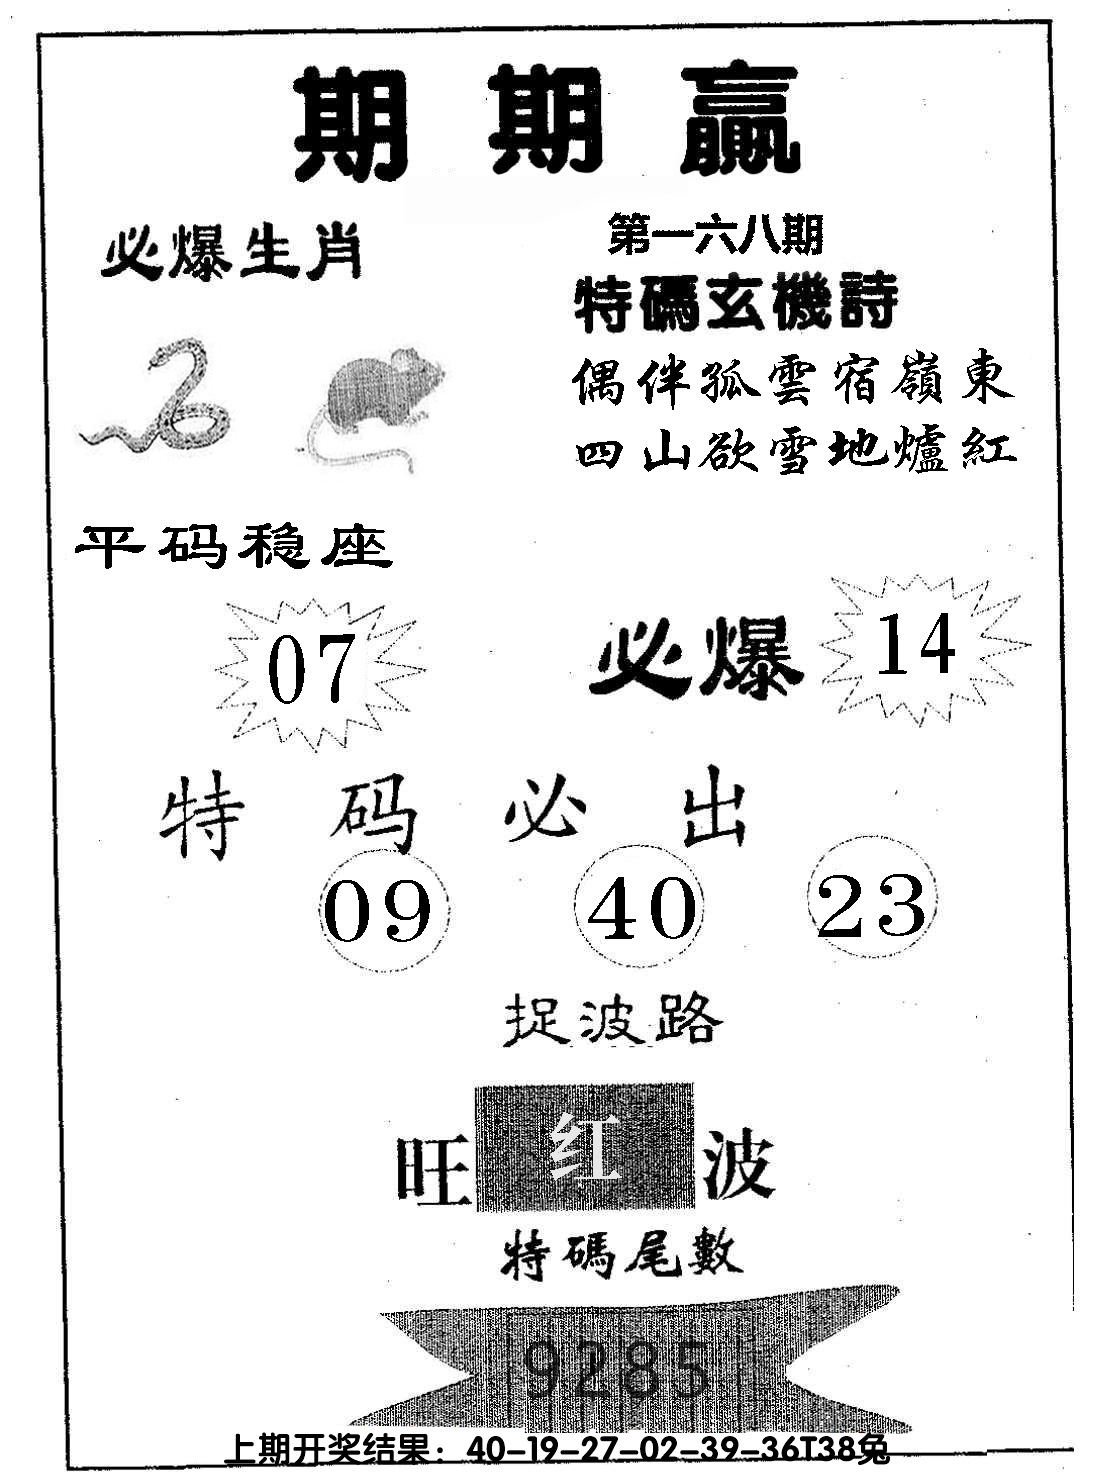 期期贏
必爆生肖
第一六八期
特碼玄機詩
偶伴孤雲宿嶺東
四山欲雪地爐紅
平码稳座
07
必爆
14
特码必出
09 40 23
捉波路
旺 红 波
特碼尾數
9285
上期开奖结果：40-19-27-02-39-36T38兔